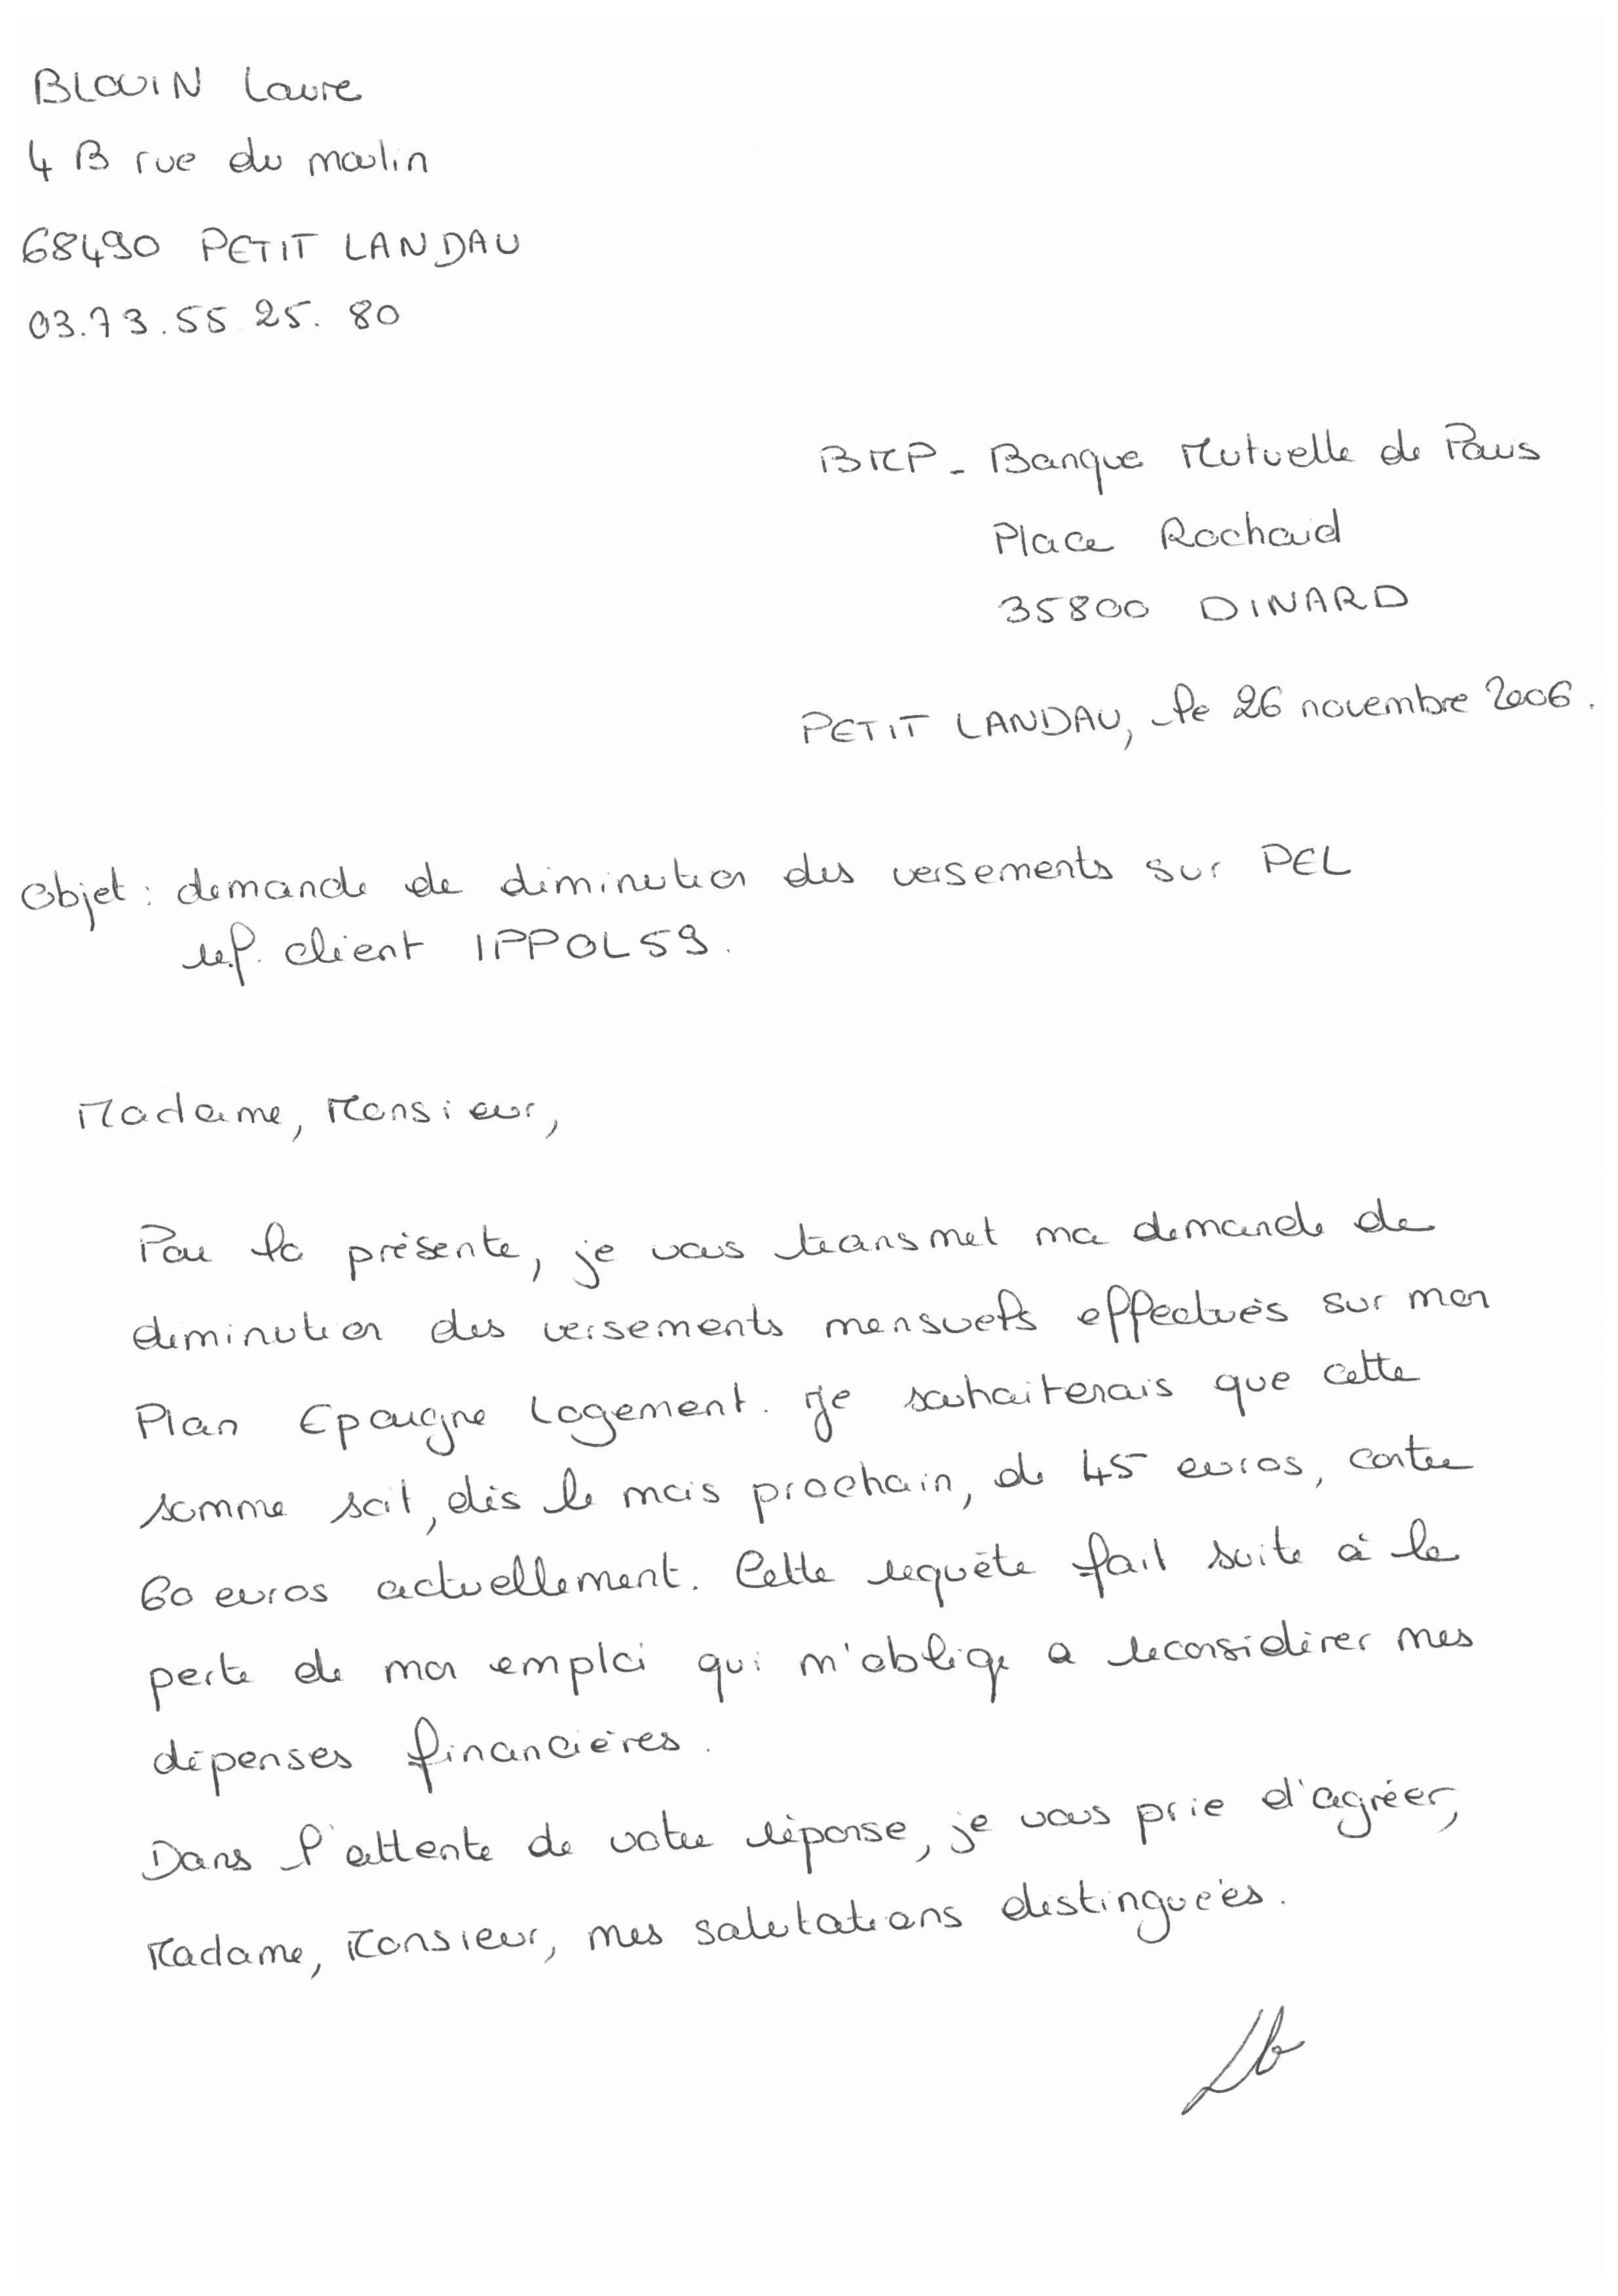 BLOUIN Laure
4 B rue du moulin
68490 PETIT LANDAU
03.73.55.25.80
BMP - Banque Mutuelle de Paris
Place Rochaid
35800 DINARD
PETIT LANDAU, le 26 novembre 2006.
Objet : demande de diminution des versements sur PEL
réf. client IPPOL59.
Madame, Monsieur,
Par la présente, je vous transmet ma demande de
diminution des versements mensuels effectués sur mon
Plan Epargne Logement. Je souhaiterais que cette
somme soit, dès le mois prochain, de 45 euros, contre
60 euros actuellement. Cette requête fait suite à la
perte de mon emploi qui m'oblige a reconsidérer mes
dépenses financières.
Dans l'attente de votre réponse, je vous prie d'agréer,
Madame, Monsieur, mes salutations distinguées.